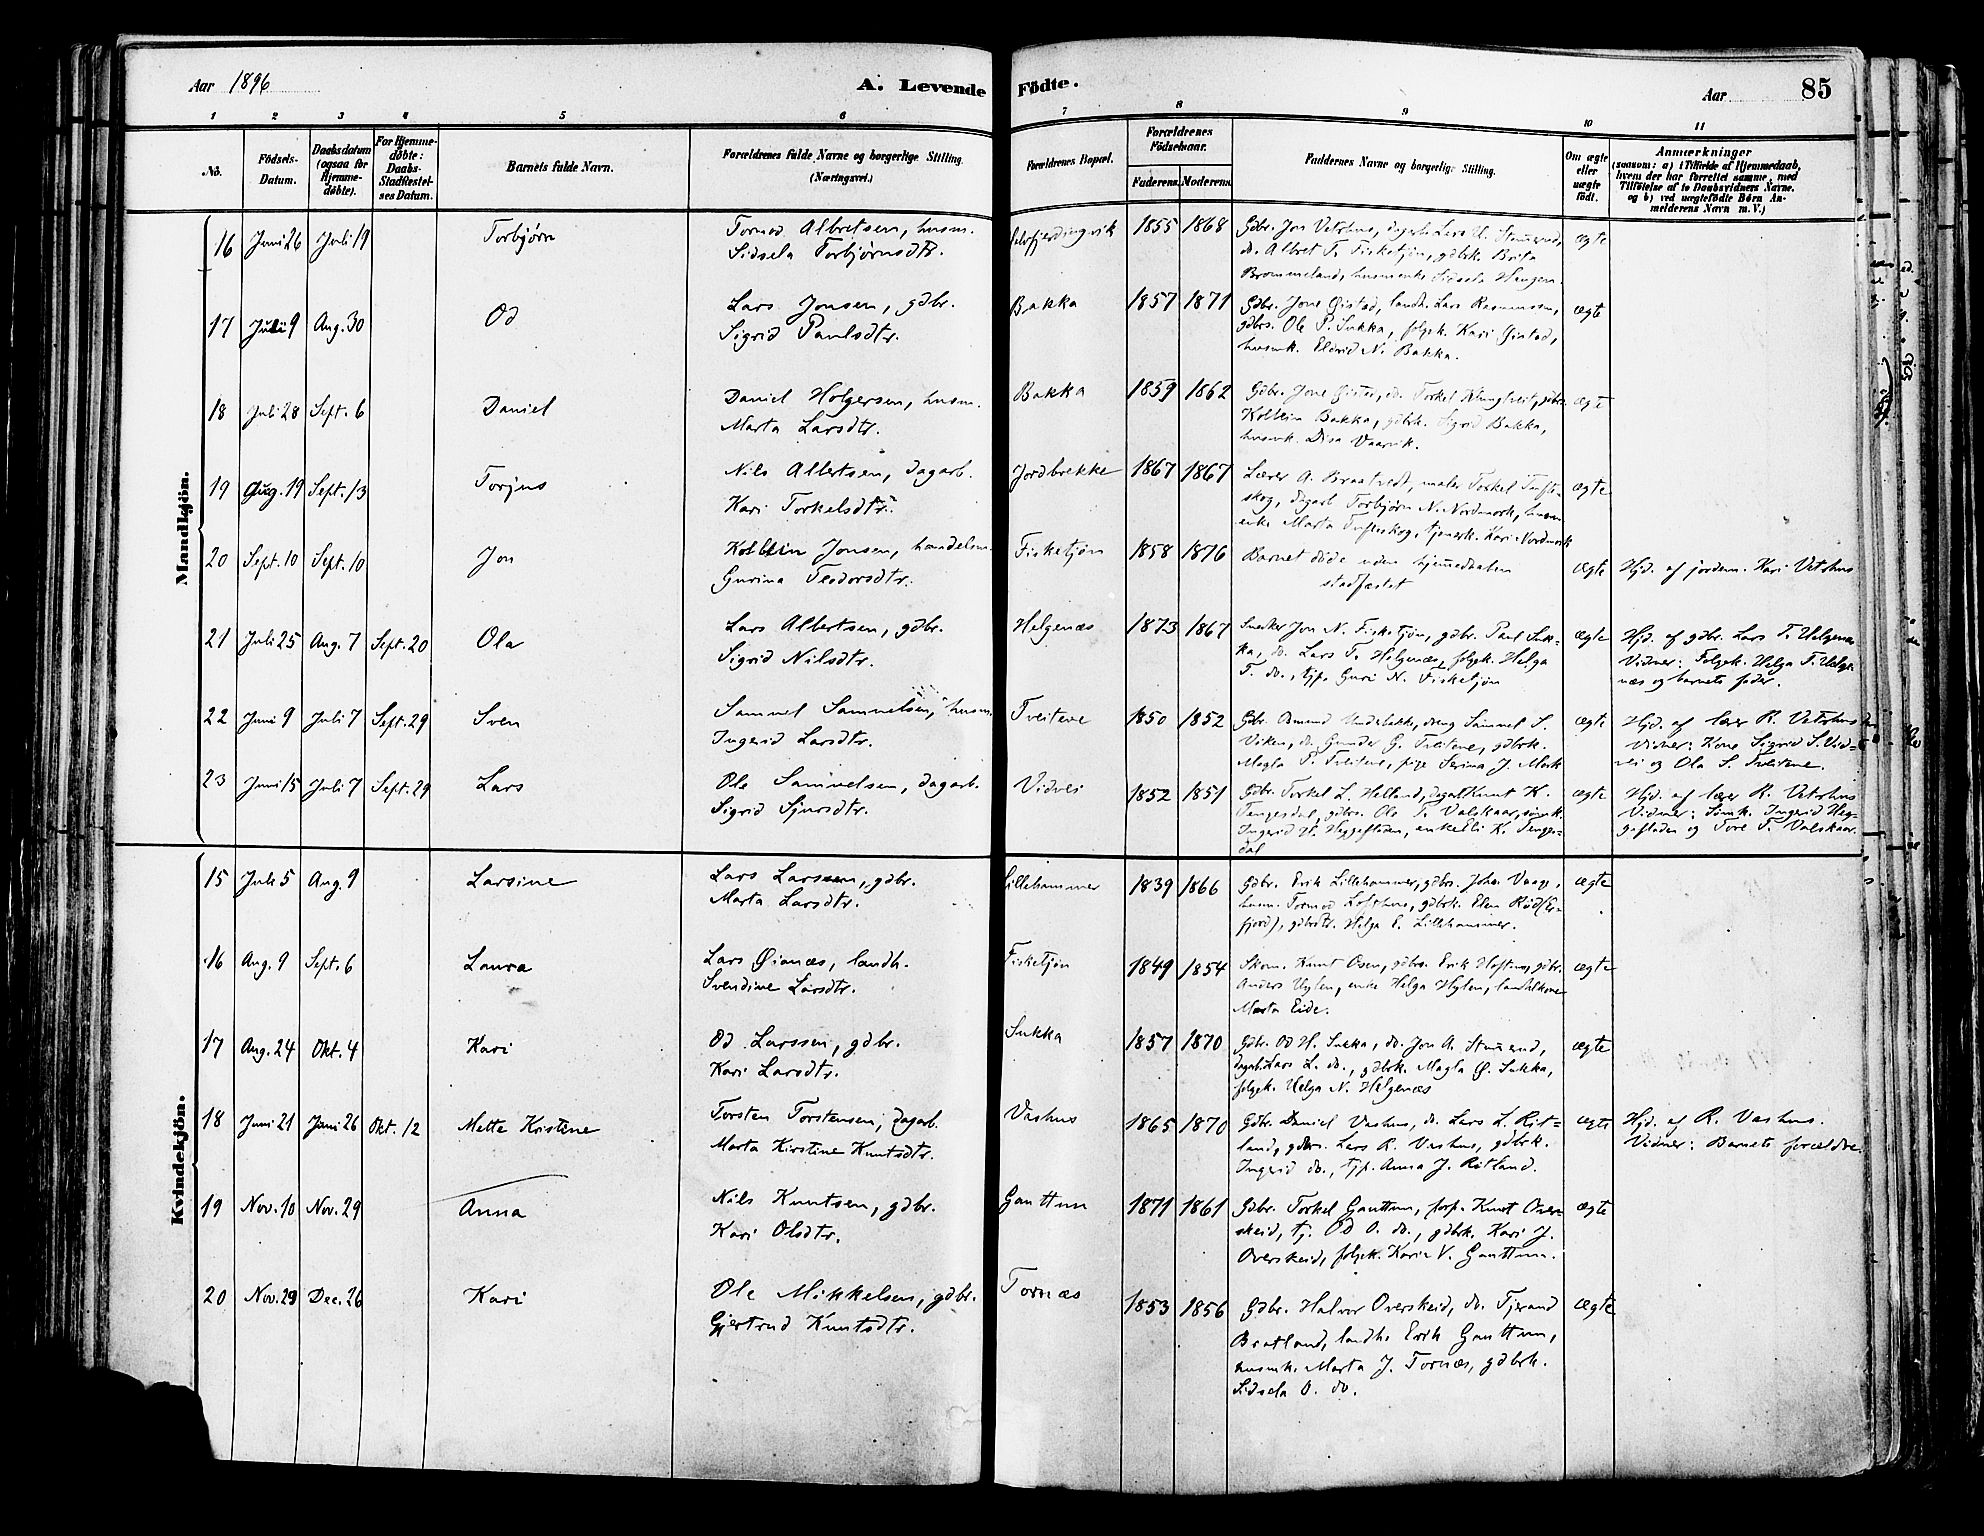 Aar 1896
A. Levende Fødte.
Aar 85
1 2 3 4 5 6 7 8 9 10 11
No.
Fødsels-
Datum.
Daabsdatum
(ogsaa for
Hjemme-
døbte).
For Hjemme-
døbte:
Daabs-
Stadfæstel-
ses Datum.
Barnets fulde Navn.
Forældrenes fulde Navne og borgerlige Stilling.
(Næringsvei.)
Forældrenes Bopæl.
Forældrenes
Fødselsaar.
Faderens. Moderens.
Faddernes Navne og borgerlige Stilling.
Om ægte
eller
uægte
født.
Anmærkninger
(saasom: a) i Tilfælde af Hjemmedaab,
hvem der har forrettet samme, med
Tilføielse af to Daabsvidners Navne,
og b) ved uægtefødte Børn An-
melderens Navn m. V.)
Mandkjøn.
16 Juni 26 Juli 19 Torbjørn
Tormod Albretsen, husm.
Sidsela Torbjørnsdtr.
1855 1868
Gdbr. Jon Vetrhus, dagarb. Lars
do. Albret T. Fisketjøn, gdbrk. Brita
Brommeland, husmenk. Sidsela Haugen.
ægte
17 Juli 9 Aug. 30 Od
Lars Jonsen, gdbr.
Sigrid Paulsdtr.
Bakka 1857 1871
Gdbr. Jone Øistad, landh. Lars Rasmussen,
gdbrs. Ole P. Sukka, folgek. Kari Øistad,
husmk. Eldrid N. Bakka.
ægte
18 Juli 28 Sept. 6 Daniel
Daniel Holgersen, husm.
Marta Larsdtr.
Bakka 1859 1862
Gdbr. Jone Øistad, do. Torkel Klungtveit, gdbrs.
Kolbein Bakka, gdbrk. Sigrid Bakka,
husmk. Disa Vaarvik.
ægte
19 Aug. 19 Sept. 13 Torjus
Nils Albertsen, dagarb.
Kari Torkelsdtr.
Jordbrekke 1867 1867
Lærer A. Braatvedt, maler Torkel Tufte-
skog, dagarb. Torbjørn N. Nordmork, husm-
enke Marta Tufteskog, tjenerk. Kari Nordmork
ægte
20 Sept. 10 Sept. 10 Jon
Kolbein Jonsen, handelsm.
Gurina Teodorsdtr.
Fisketjøn 1858 1876
Barnet døde uden hjemmedaaben
stadfæstet
ægte
Hjd. af jordem. Kari Vetrhus
21 Juli 25 Aug. 7 Sept. 20 Ola
Lars Albertsen, gdbr.
Sigrid Nilsdtr.
Helgenæs 1873 1867
Snedker Jon N. Fisketjøn, gdbr. Paul Suk-
ka, do. Lars T. Helgenæs, folgek. Helga
T. do., tjp. Guri N. Fisketjøn
ægte
Hjd. af gdbr. Lars T. Helgenæs
Vidner: Folgek. Helga T. Helge-
næs og barnets fader.
22 Juni 9 Juli 7 Sept. 29 Sven
Samuel Samuelsen, husm.
Ingerid Larsdtr.
Treitene 1850 1852
Gdbr. Asmund Underbakke, dreng Samuel S.
Viken, do. Gunder G. Treitene, gdbrk.
Magla T. Treitene, pige Serina J. Mork
ægte
Hjd. af lærer R. Vetrhus
Vidner: Kone Sigrid S. Vid-
vei og Ola S. Treitene.
23 Juni 15 Juli 7 Sept. 29 Lars
Ole Samuelsen, dagarb.
Sigrid Sjursdtr.
Vidvei 1852 1851
Gdbr. Torkel L. Helland, dagarb. Knut K.
Tengesdal, gdbrs. Ole T. Valskaar,
Ingerid H. Heggefladen, enke Eli K. Tenges-
dal
ægte
Hjd. af lærer R. Vetrhus
Vidner: Ingerid Heg-
gefladen og Tore T. Valskaar.
Kvindekjøn.
15 Juli 5 Aug. 9 Larsine
Lars Larssen, gdbr.
Marta Larsdtr.
Lillehammer 1839 1866
Gdbr. Erik Lillehammer, gdbr. Johan Vaage,
husm. Tormod Lofthus, gdbrk. Elen Rød (Er-
fjord), gdbrdtr. Helga E. Lillehammer.
ægte
16 Aug. 9 Sept. 6 Laura
Lars Øianæs, landh.
Svendine Larsdtr.
Fisketjøn 1849 1854
Skom. Knut Osen, gdbrs. Erik Hoftun, gdbr.
Anders Hylen, enke Helga Hylen, landhkone
Marta Eide.
ægte
17 Aug. 24 Okt. 4 Kari
Od Larssen, gdbr.
Kari Larsdtr.
Sukka 1857 1870
Gdbr. Od H. Sukka, do. Jon A.
dagarb. Lars L. do., gdbrk. Magla Ø. Sukka,
folgk. Helga N. Helgenæs
ægte
18 Juni 21 Juni 26 Okt. 12 Mette Kristine
Torsten Torstensen, dagarb.
Marta Kirstine Knutsdtr.
Vashus 1865 1870
Gdbr. Daniel Vashus, do. Lars L. Rit-
land, gdbrs. Lars R. Vashus, gdbrk.
Ingerid do., tjp. Anna J. Ritland.
ægte
Hjd. af R. Vashus.
Vidner: Barnets forældre.
19 Nov. 10 Nov. 29 Anna
Nils Knutsen, gdbr.
Kari Olsdtr.
Gauttun 1871 1861
Gdbr. Torkel Gauttun, forp. Knut Over-
skeid, tj. Od O. do., gdbrk. Kari J.
Overskeid, folgek. Kari V. Gauttun.
ægte
20 Nov. 29 Dec. 26 Kari
Ole Mikkelsen, gdbr.
Gjertrud Knutsdtr.
Tornæs 1853 1856
Gdbr. Halvor Overskeid, do. Tjerand
Bratland, landh. Erik Gauttun,
husmk. Marta J. Tornæs, gdbrk.
Sidsela O. do.
ægte